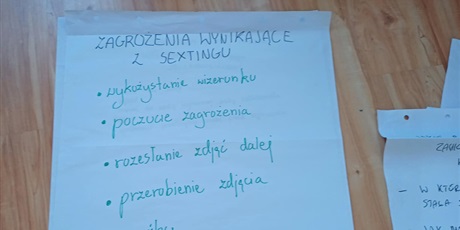 ZAGROŻENIA WYNIKAJĄCE
Z SEXTINGU
• wykożystanie wizerunku
• poczucie zagrożenia
• rozesłanie zdjęć dalej
• przerobienie zdjęcia
- W KTÓR
STAŁA